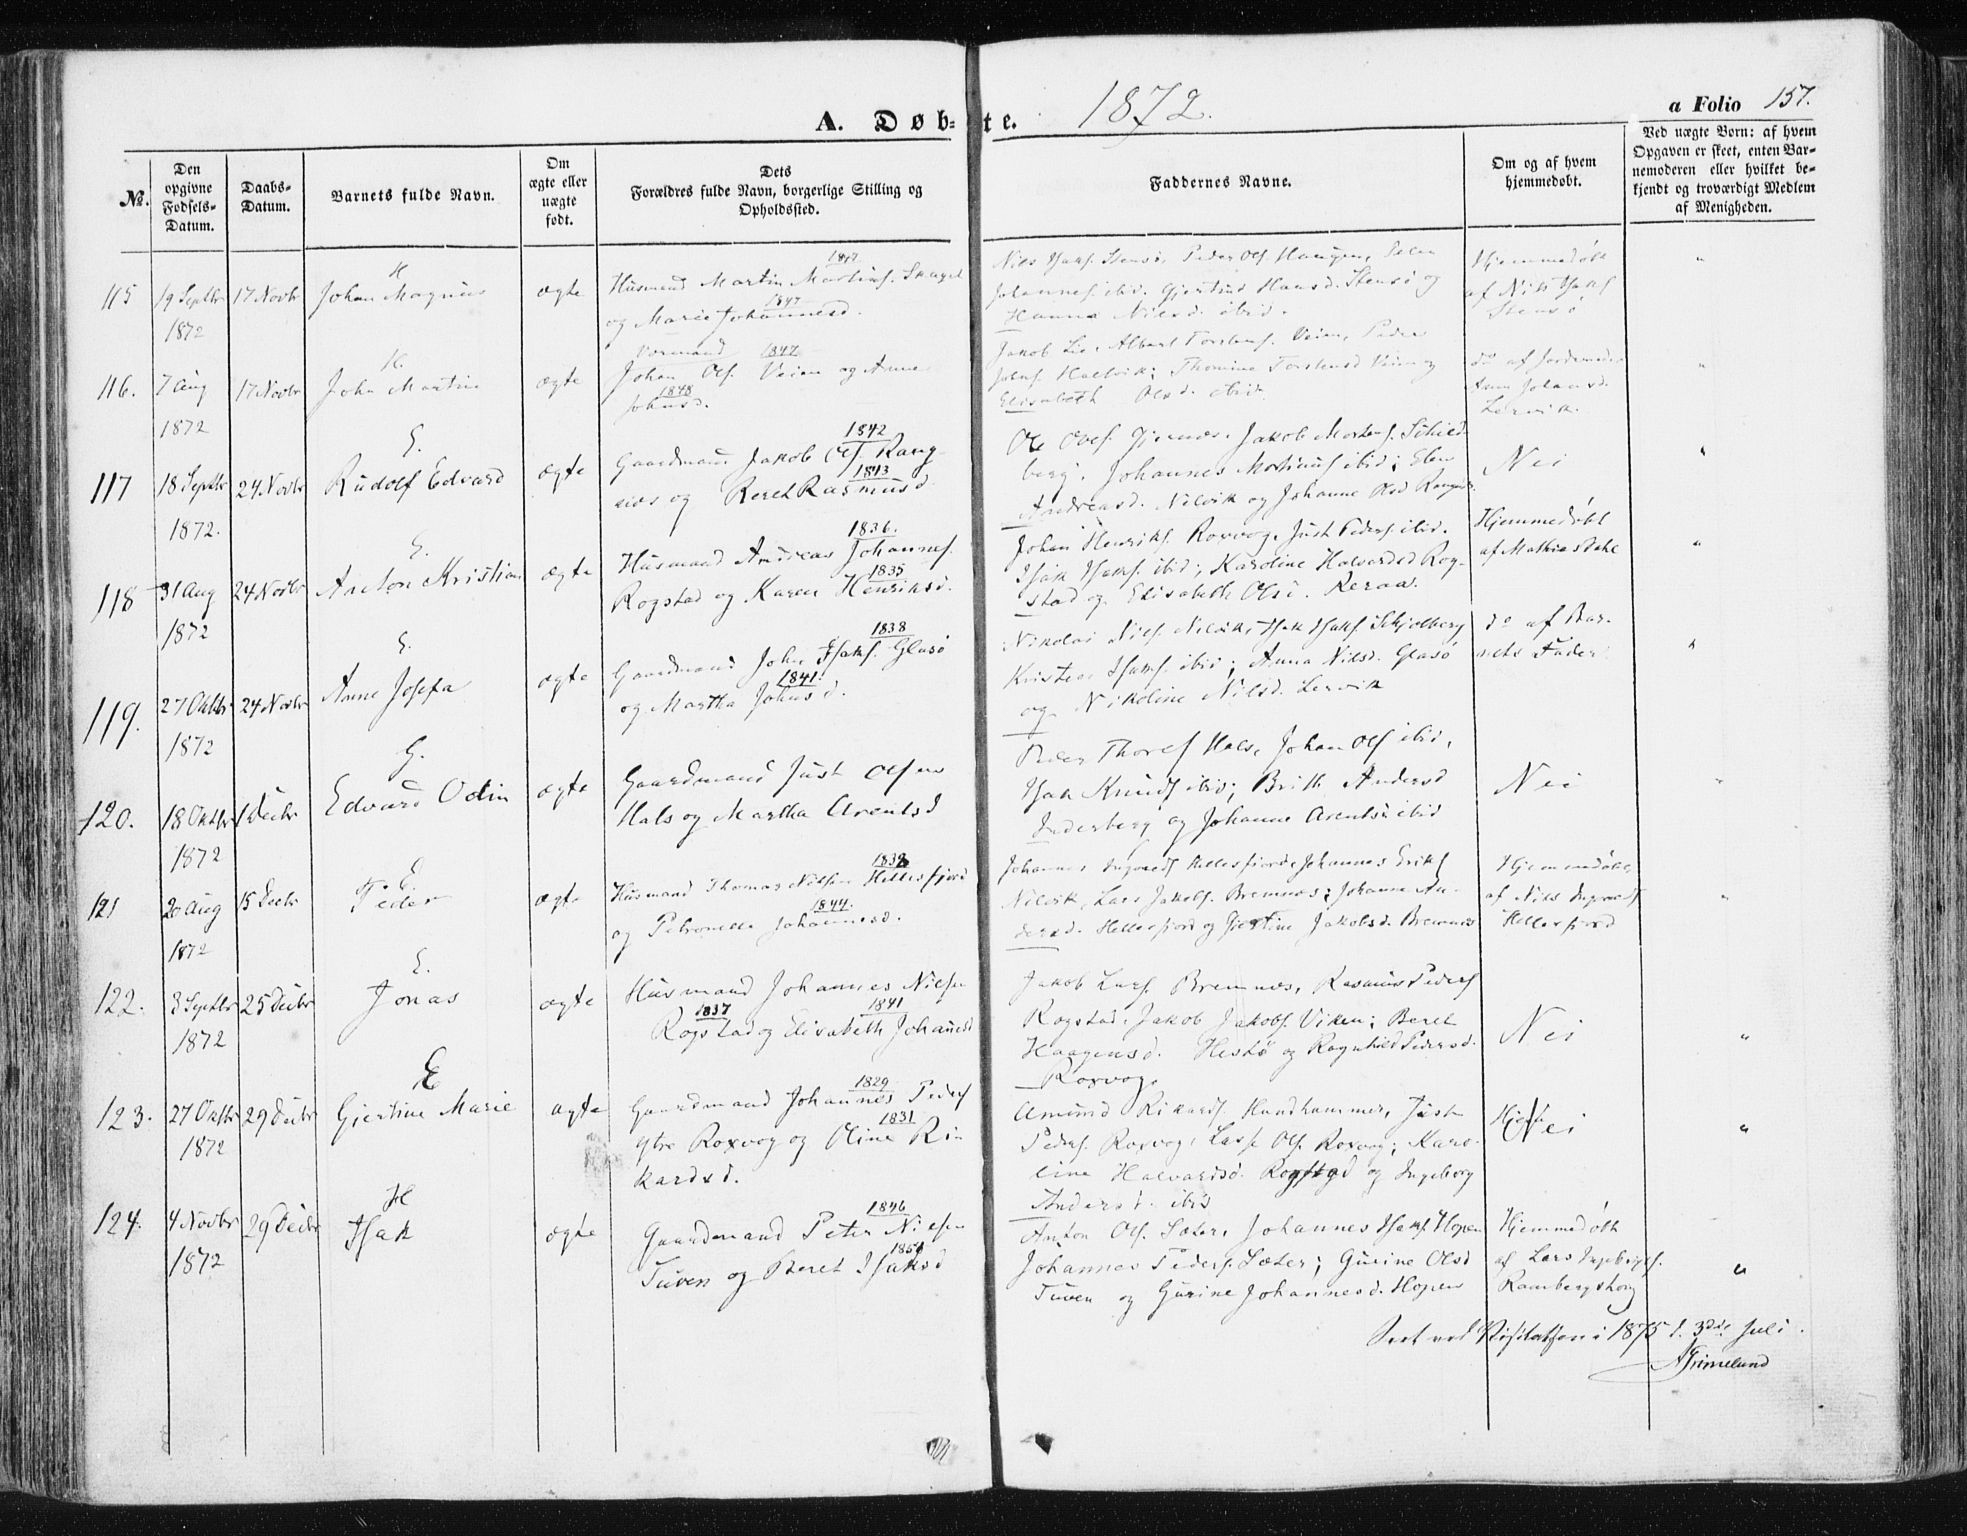 A. Døb-te. 1872.
a Folio 157.
No.
Den opgivne Fødsels-Datum.
Daabs-Datum.
Barnets fulde Navn.
Om ægte eller uægte født.
Dets Forældres fulde Navn, borgerlige Stilling og Opholdssted.
Faddernes Navne.
Om og af hvem hjemmedøbt.
Ved uægte Børn: af hvem Opgaven er skeet, enten Barnemoderen eller hvilket bekjendt og troværdigt Medlem af Menigheden.
115 19 Septbr 1872 17 Novbr
H
Johan Magnus
ægte
Husmand Martin
og Marie Johannesd.
1847
Nils Isaks. Stensø, Peder Ols. Haugen, Peder
Johannes. ibid. Gjertrud Hansd. Stensø og
Hanna Nilsd. ibid.
Hjemmedøbt
af Nils Isaks
Stensø
"
116. 7 Aug 1872 17 Novbr
H.
John Martin
ægte
1847
Johan Ols. Veien og Anne
1848
Johnsd.
Jakob Lie, Albert Torstens. Veien, Peder
Johns. Halsvik; Thomine Torstensd Veien og
Elisabeth Olsd. ibid.
do af Jordemoder
Johansd.
Lervik.
"
117 18 Septbr 1872. 24 Novbr
E.
Rudolf Edvard
ægte
1842
Gaardmand Jakob Ols. Rang-
1843
næs og Beret Rasmusd.
Ole Ols. Gjernæs, Jakob Mortens. Schiel-
berg, Johannes Mortens ibid; Elen
Andreasd. Nilvik og Johanne Olsd Rangnæs.
Nei
"
118 31 Aug 1872 24 Novbr
E.
Anton Kristian
ægte
1836.
Husmand Andreas Johannes.
1835
Rogstad og Karen Henriksd.
Johan Henriks. Roxvog, Just Peders. ibid.
Isak Isaks. ibid; Karoline Halvardsd Rog-
stad og Elisabeth Olsd. Reraa.
Hjemmedøbt
af Mathias Dahl
"
119. 27 Oktbr 1872 24 Novbr
E.
Anne Josefa
ægte
1838
Gaardmand John Isaks. Glasø
1841.
og Martha Johnsd.
Nikolai Nils. Nilvik, Isak Isaks. Schjølberg
Kristen Isaks. ibid; Anna Nilsd. Glasø
og Nikoline Nilsd. Lervik
do af Bar-
nets Fader
"
120. 18 Oktbr 1872 1 Decbr
G.
Edvard Odin
ægte
Gaardmand Just Olsen
Hals og Martha Arentsd
Peder Thores Hals, Johan Ols ibid,
Isak Knuds ibid; Brith Andersd
Inderberg og Johanne Arentsd ibid
Nei
"
121 20 Aug 1872 15 Decbr
E
Peder
ægte
1838
Husmand Thomas Nilsen Hellesfjord
1844.
og Petronelle Johannesd.
Johannes Hellesfjord, Johannes Eriks
Nilvik, Lars Jakobs. Bremnæs; Johanne An-
dersd. Hellesfjord og Gjertine Jakobsd. Bremnæs
Hjemmedøbt
af Nils
Hellesfjord
"
122. 3 Septbr 1872 25 Decbr
E.
Jonas
ægte
Husmand Johannes Nilsen
1837 1841
Rogstad og Elisabeth Johansd
Jakob Lars. Bremnæs, Rasmus Peders
Rogstad, Jakob Jakobs. Viken; Beret
Haagensd. Hestø og Ragnhild Pedersd.
Roxvog.
Nei
"
123. 27 Oktbr 1872 29 Decbr
E
Gjertine Marie
ægte
1829
Gaardmand Johannes Peders
1831
ytre Roxvog og Oline Ri-
kardsd.
Amund Rikards. Hundhammer, Just
Peders. Roxvog, Lasse Ols. Roxvog; Karo-
line Halvardsd. Rogstad og Ingeborg
Andersd. ibid
Nei
"
124. 4 Novbr 1872 29 Decbr
H
Isak
ægte
1846
Gaardmand Peter Nilsen
1850
Tuven og Beret Isaksd
Anton Ols. Sæter, Johannes Isaks. Hopen
Johannes Peders. Sæter; Gurine Olsd
Tuven og Gurine Johannesd. Hopen
Hjemmedøbt
af Lars Ingebrigts.
Rambergshoug
"
Seet ved Visitatsen i 1875 d. 3die Juli.
AGrimelund